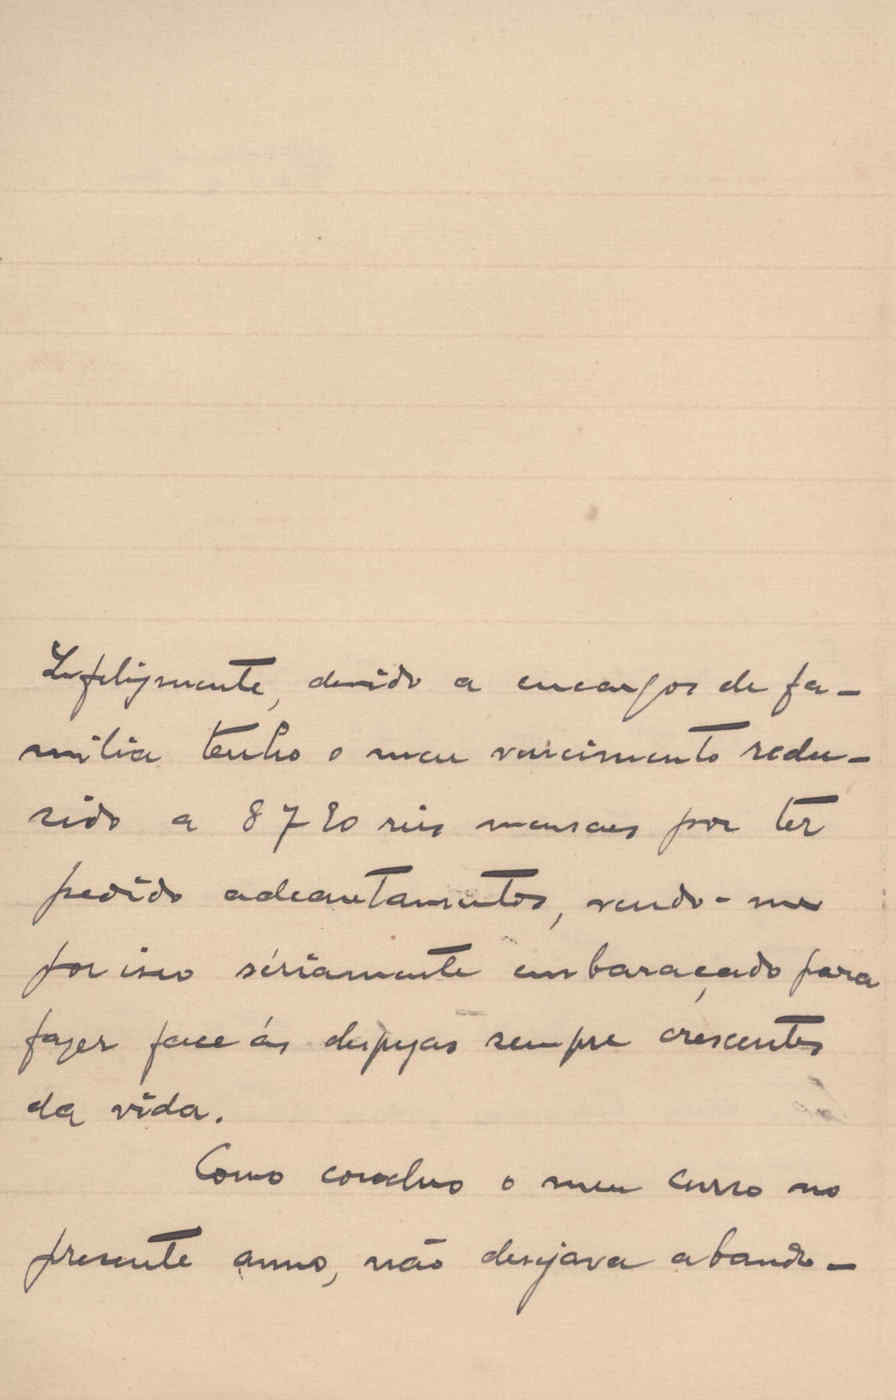 Infelizmente, devido a encargos de fa-
milia tenho o meu vencimento redu-
zido a 8720 reis mensaes por ter
pedido adeantamentos, vendo-me
por isso sériamente embaraçado para
fazer face ás despezas sempre crescentes
da vida.
Como concluo o meu curso no
presente anno, não desejava abando-